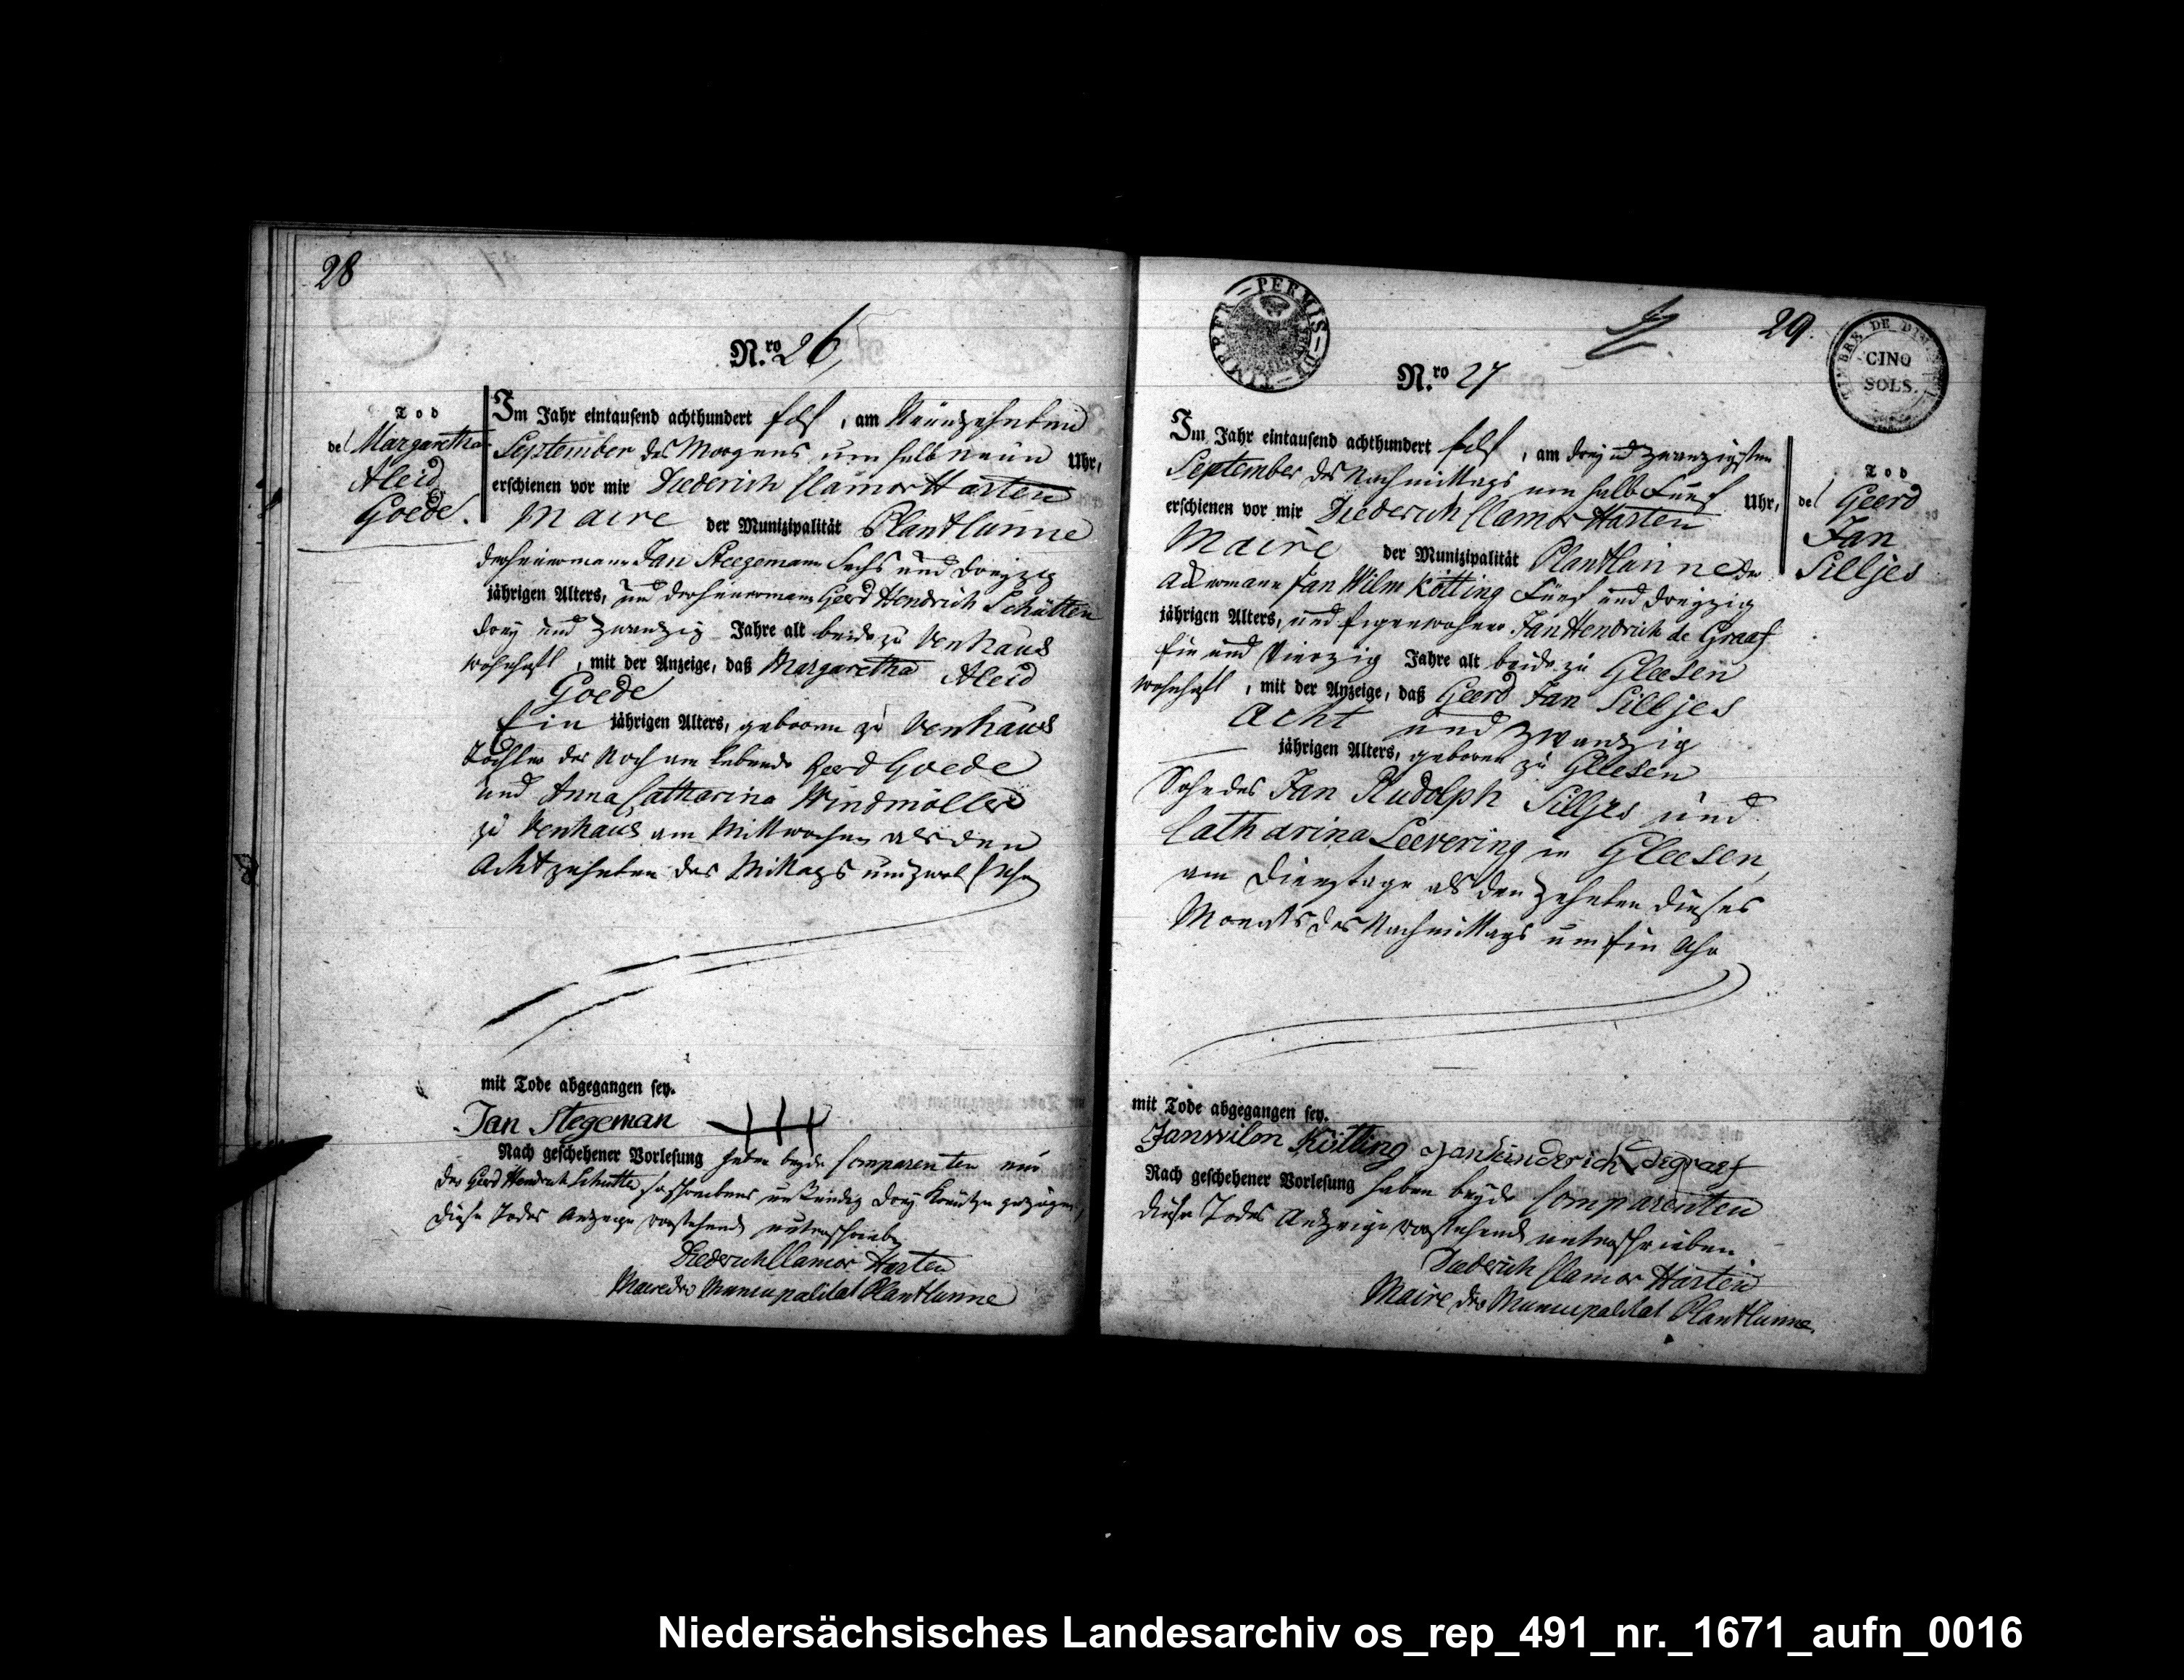 28
N.ro 26
Tod
der Margaretha
Aleid
Goede.
Im Jahr eintausend achthundert elf, am Neunzehnten
September des Morgens um halb neun Uhr,
erschienen vor mir Diederich Clamor Harten
Maire der Munizipalität Plantlünne
der heuermann Jan Steegemann Sechs und dreyzig
jährigen Alters, und der heuermann Gerd Hendrich Schütten
drey und zwanzig Jahre alt beide zu Venhaus
wohnhaft, mit der Anzeige, daß Margaretha Aleid
Goede
Ein jährigen Alters, geboren zu Venhaus
Tochter der Noch am lebende Geerd Goede
und Anna Catharina Windmöller
zu Venhaus am Mittwochen als den
Achtzehnten des Mittags um zwolf Uhr
mit Tode abgegangen sey.
Jan Stegeman
Nach geschehener Vorlesung haben beyde Comparenten
der Gerd Hendrich Schütte schreibens unkündig drey Kreutze gezogen,
diese Todes Anzeige vorstehend unterschrieben
Diederich Clamor Harten
Maire der Municipalitat Plantlunne
29.
PERMIS
TIMBRE DE
CINQ
SOLS.
N.ro 27
Tod
des Geerd
Jan
Silljes
Im Jahr eintausend achthundert elf, am drey und zwanzigsten
September des Nachmittags um halb Fünf Uhr,
erschienen vor mir Diederich Clamor Harten
Maire der Munizipalität Plantlünne der
Ackermann Jan Wilm Kötting Fünf und dreyzig
jährigen Alters, und Eigenwohner Jan Hendrich de Graaf
Ein und Vierzig Jahre alt beide zu Gleesen
wohnhaft, mit der Anzeige, daß Geerd Jan Silljes
Acht und zwanzig
jährigen Alters, geboren zu Gleesen
Sohn des Jan Rudolph Silljes und
Catharina Leevering in Gleesen,
am Dienstage als den zehnten dieses
Monats des Nachmittags um Ein Uhr
mit Tode abgegangen sey.
Janwilm Kötting Janhinderich degraef
Nach geschehener Vorlesung haben beyde Comparenten
diese Todes Anzeige vorstehend unterschrieben.
Diederich Clamor Harten
Maire der Municipalitat Plantlunne.
Niedersächsisches Landesarchiv os_rep_491_nr._1671_aufn_0016